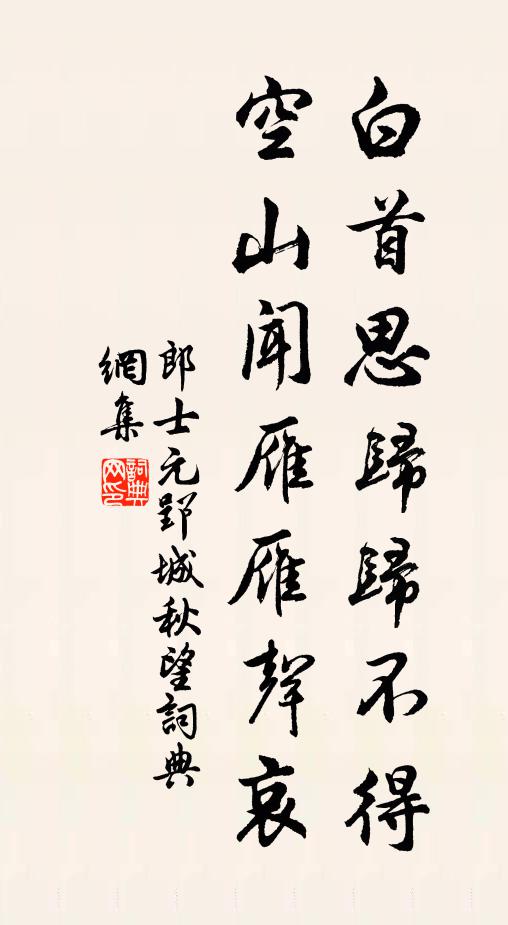 白首思歸歸不得
空山聞雁雁聲哀
郎士元郢城秋望詞典
網集
詞典
网印